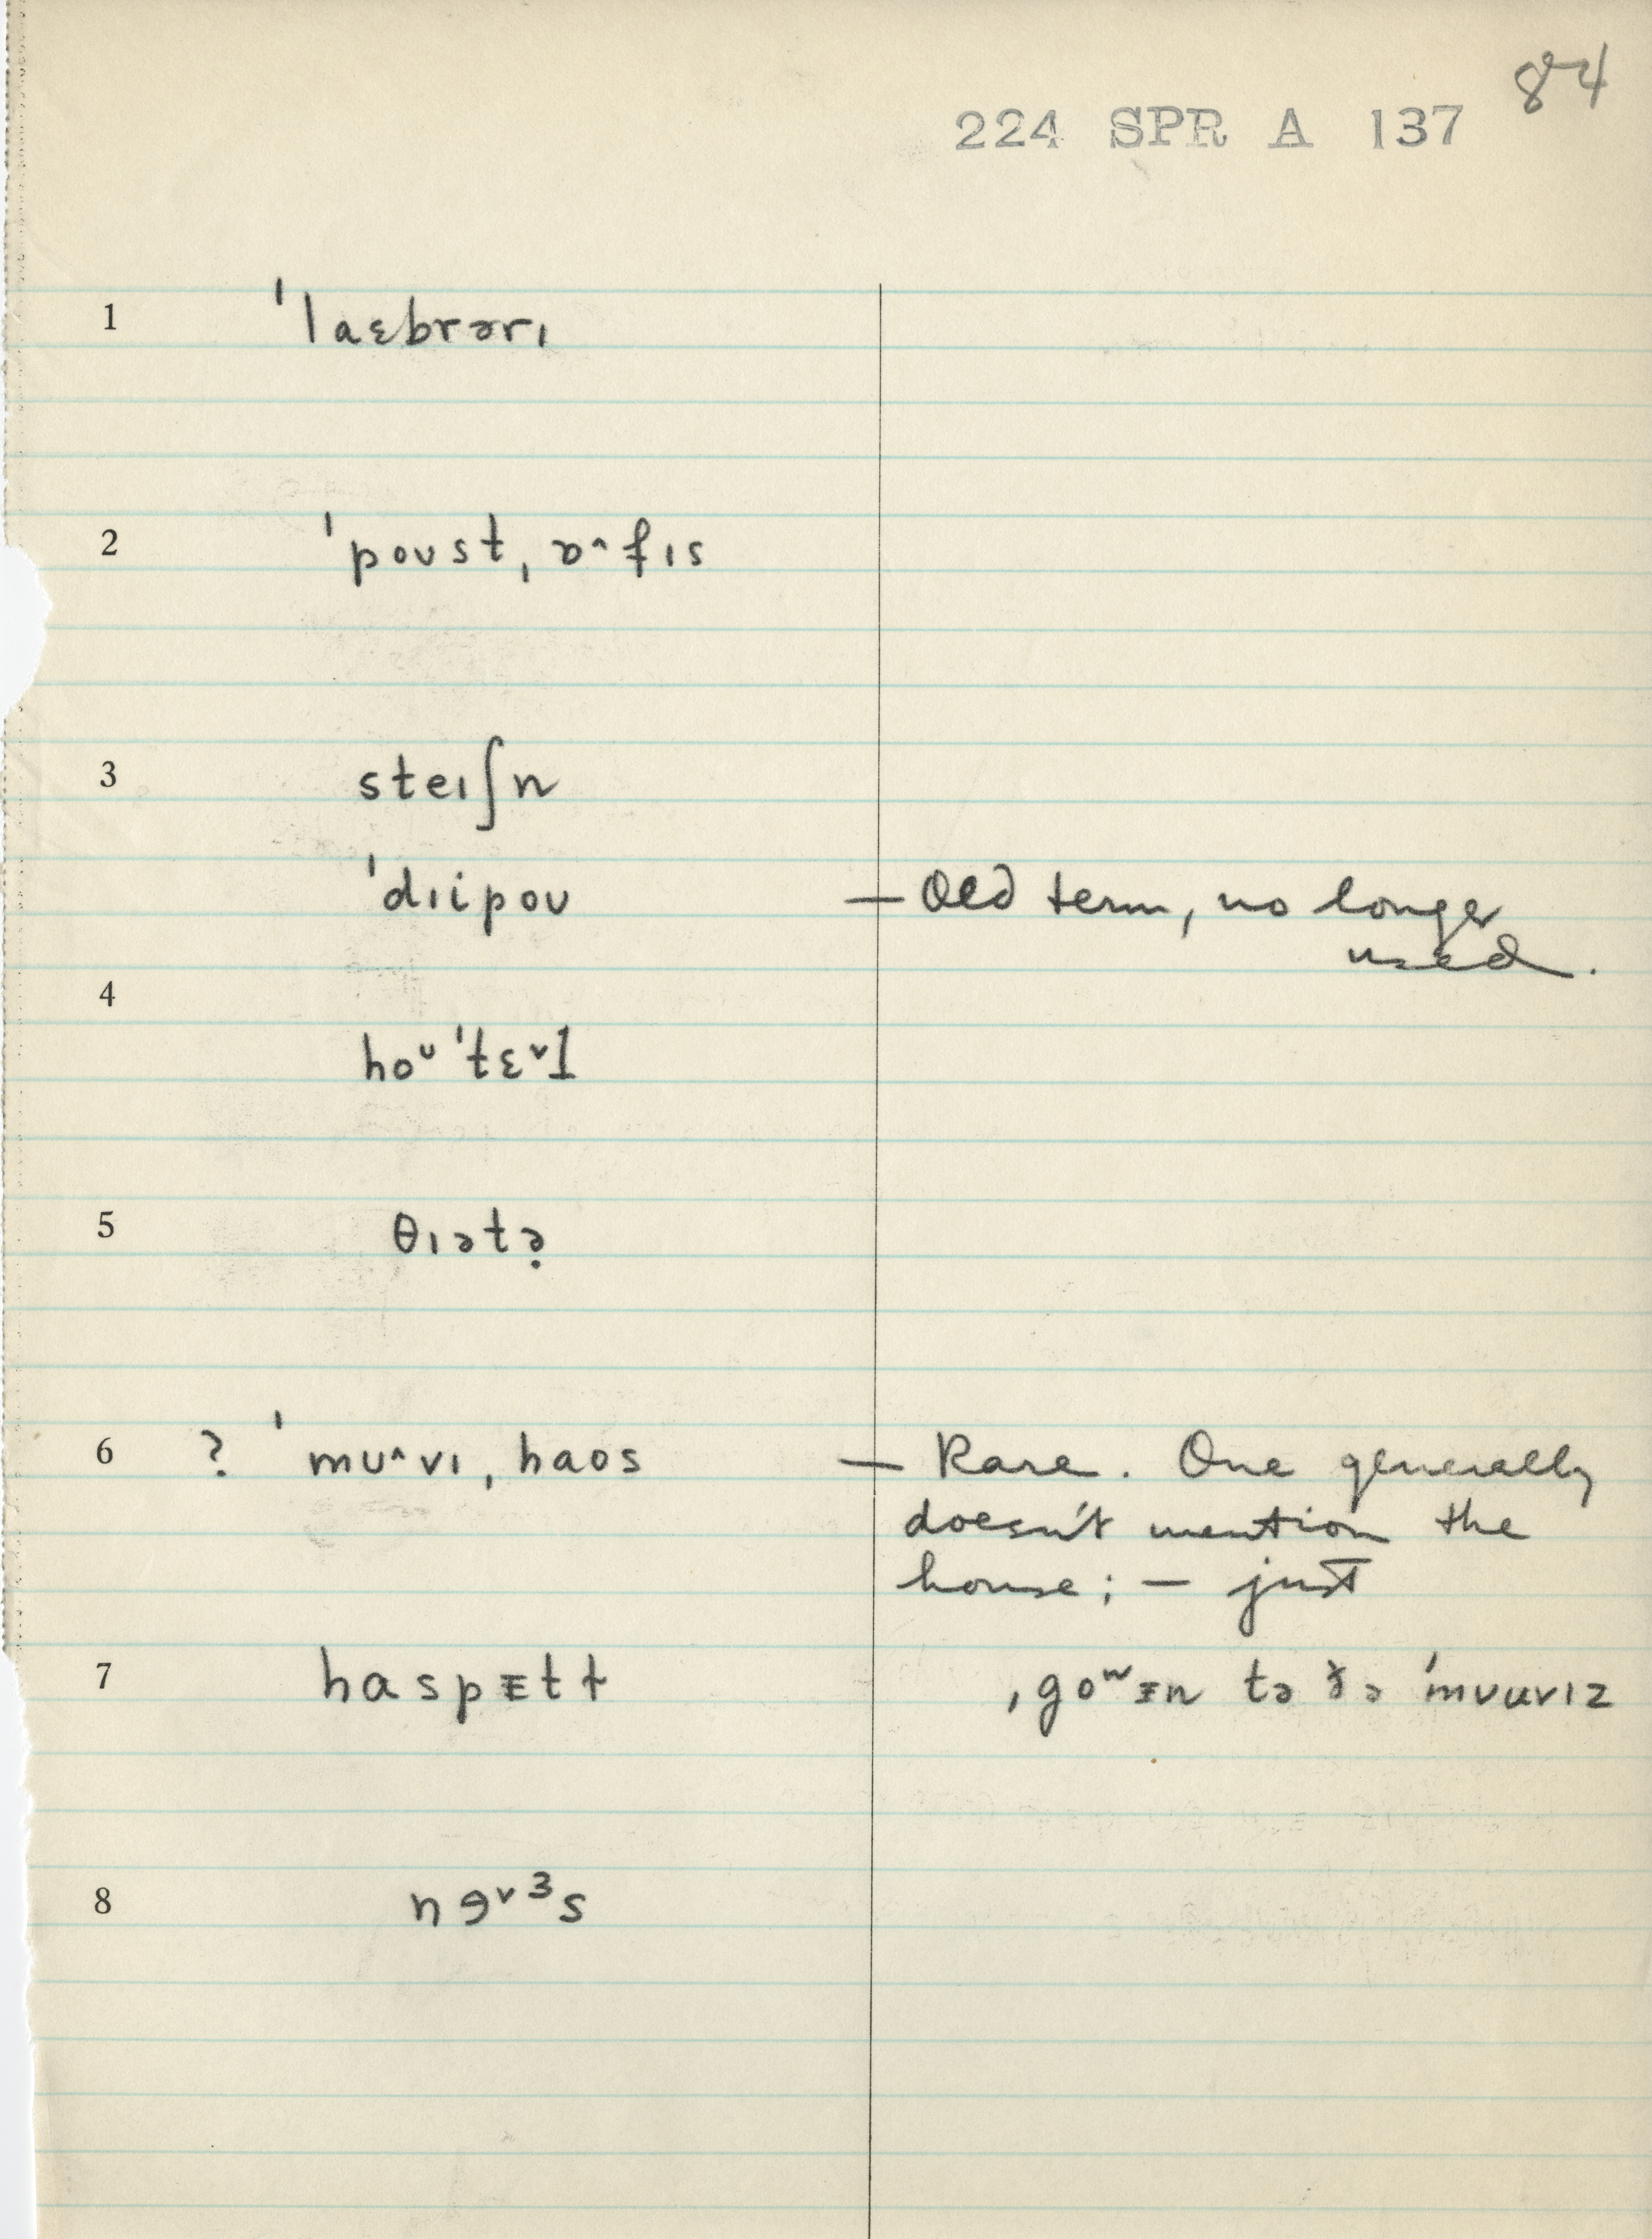 84
224 SPR A 137
1 ˈlaɛbrərɪ
2 ˈpoʊst, ɒ^fɪs
3 steɪʃn
ˈdɪipoʊ — Old term, no longer
used.
4
hoᶷ ˈtɛ˅ɫ
5 θɪətə̣
6 ? ˈmʊ^vɪ, haos — Rare. One generally
doesn't mention the
house; — just
7 haspᵻtt ˌgoʷᵻn tə ðə ˈmʊuvɪz
8 nɘ˅ᶟs